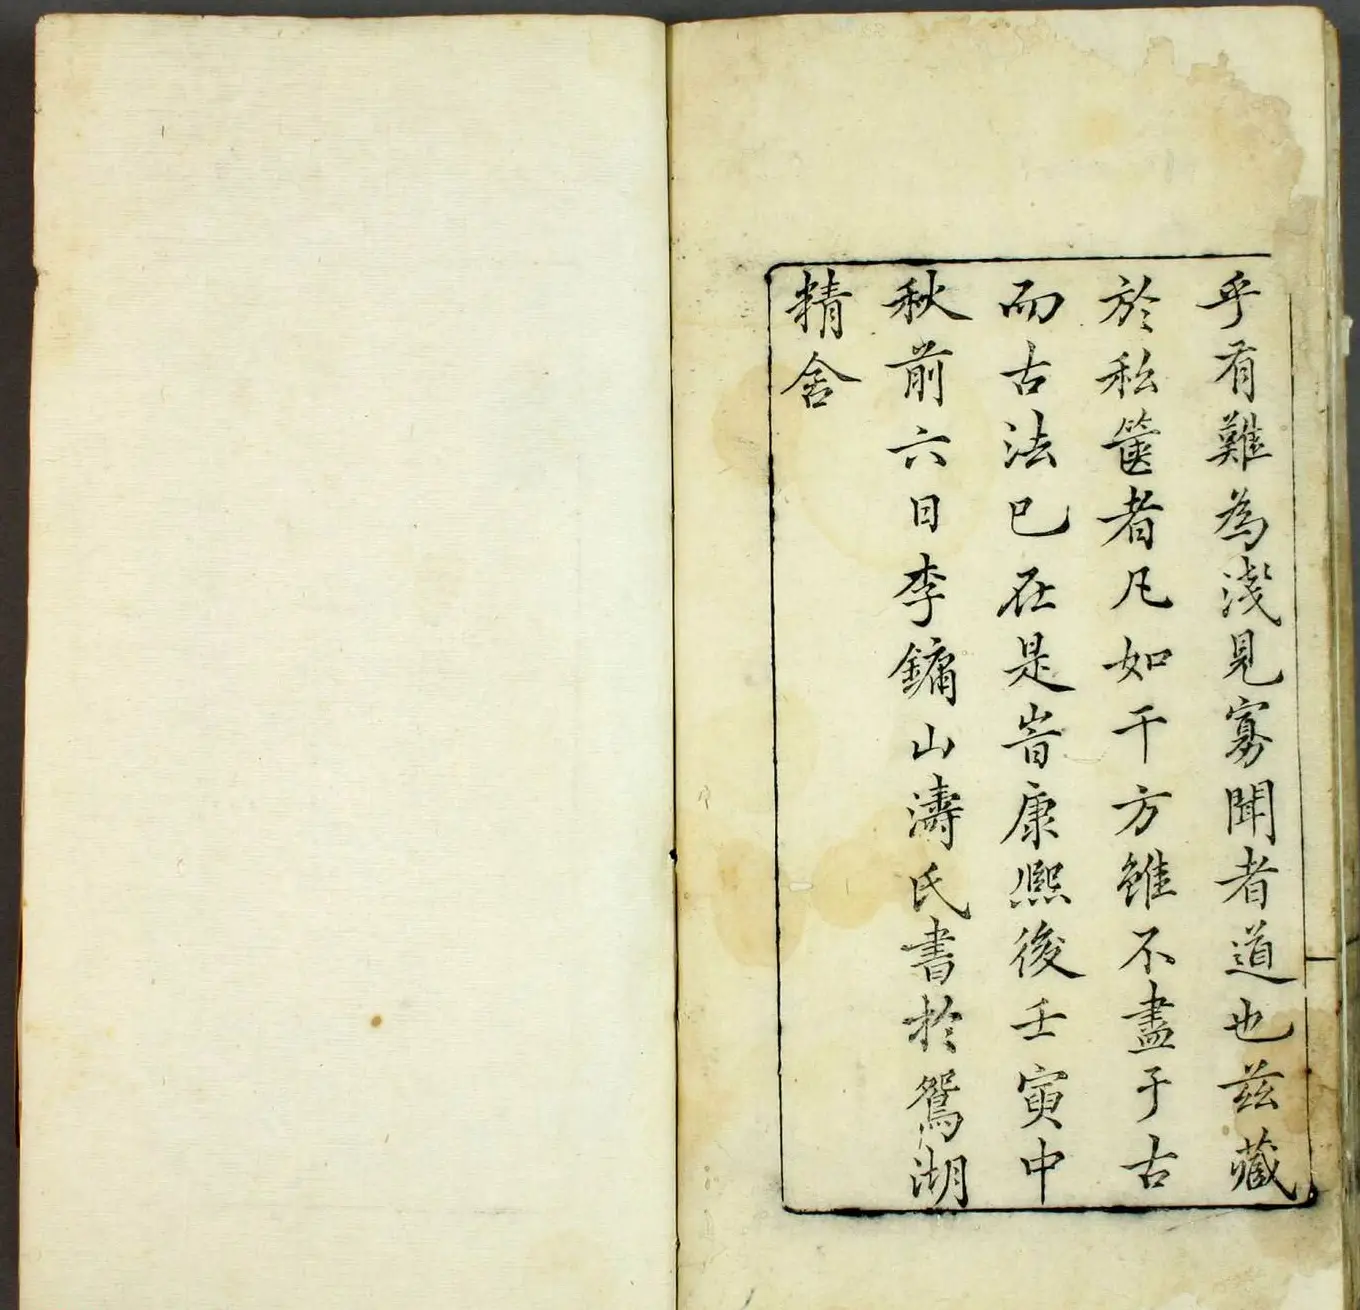 乎有難為淺見寡聞者道也茲藏
於私篋者凡如干方雖不盡于古
而古法已在是旹康熙後壬寅中
秋前六日李鏞山濤氏書於鴛湖
精舍